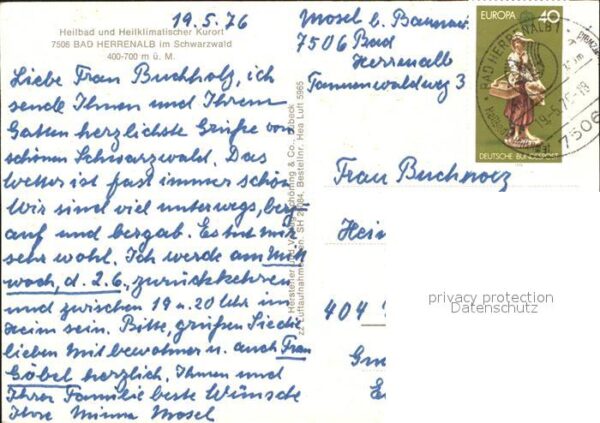 19.5.76
Heilbad und Heilklimatischer Kurort
7506 BAD HERRENALB im Schwarzwald
400-700 m ü. M.
Liebe Frau Buchholz, ich
sende Ihnen und Ihrem
Gatten herzlichste Grüße vom
schönen Schwarzwald. Das
Wetter ist fast immer schön
Wir sind viel unterwegs, berg-
auf und bergab. Es tut mir
sehr wohl. Ich werde am Mitt
woch, d. 2.6. zurückkehren
und zwischen 19 u. 20 Uhr im
Heim sein. Bitte, grüßen Sie die
lieben Mitbewohner u. auch Frau
Göbel herzlich. Ihnen und
Ihrer Familie beste Wünsche
Ihre Minna Mosel
Hersteller und Verlag Schöning & Co. Lübeck
Luftaufnahmen SH 29084, Bestellnr. Hea Luft 5965
Mosel b.
7506 Bad
Herrenalb
Tannenwaldweg 3
EUROPA 40
DEUTSCHE BUNDESPOST
BAD HERRENALB 1
19.-5.76-18
7506
Frau
Hei
404
privacy protection
Datenschutz